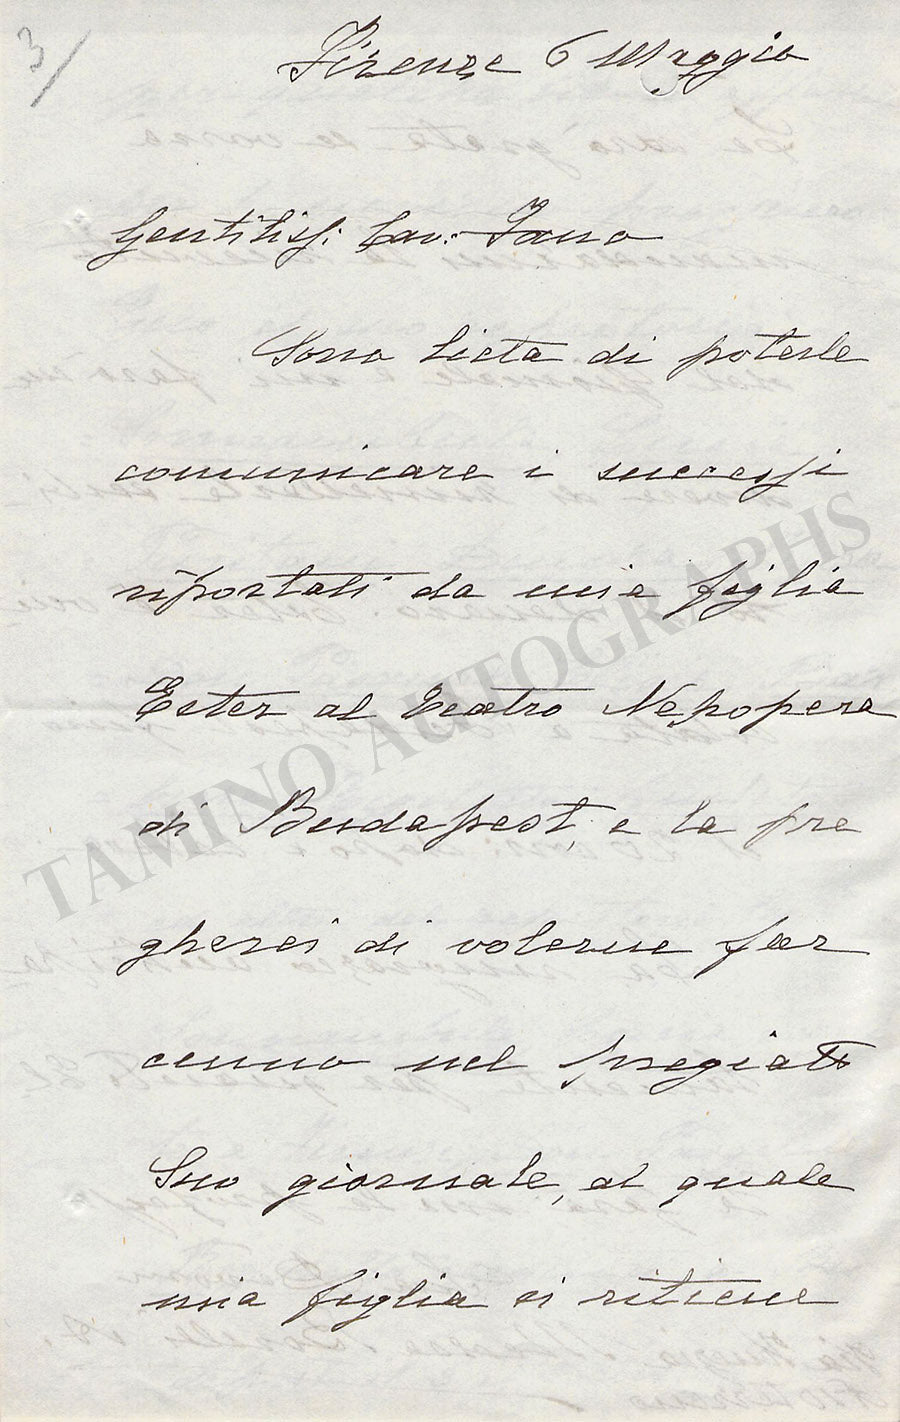 3/
Firenze 6 Maggio
Gentiliss: Cav: Fano
Sono lieta di poterle
comunicare i successi
riportati da mia figlia
Ester al Teatro Nepopera
di Budapest, e la pre
gherei di volerne far
cenno nel pregiato
Suo giornale, al quale
mia figlia si ritiene
TAMINO AUTOGRAPHS